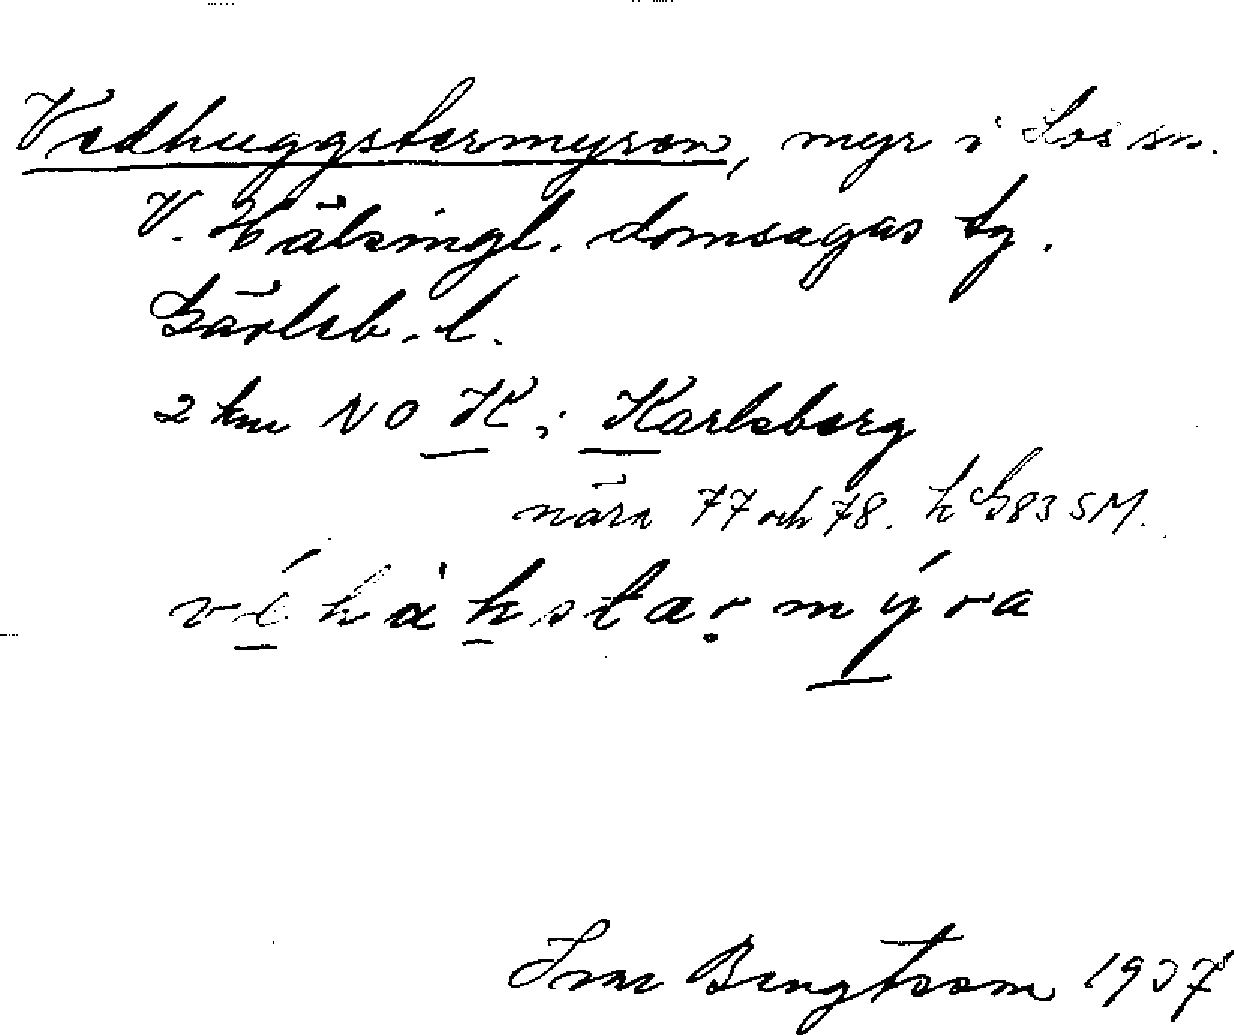 Vedhuggstermyren, myr i Los sn.
V. Hälsingl. domsagas tg.
Gävleb. l.
2 km NO K i Karlsberg
nära 77 och 78. h G83 SM.
véhàkstarmýra
Bengtsson 1937